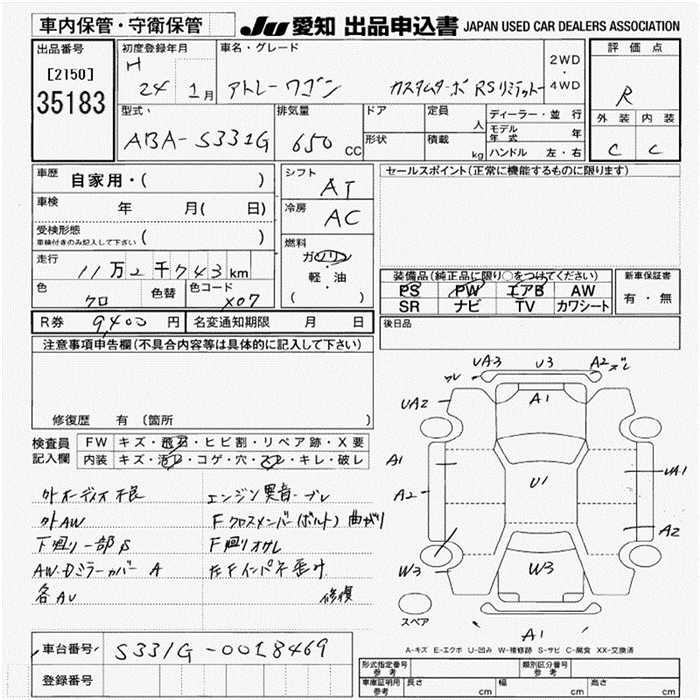 車内保管・守衛保管 JU 愛知 出品申込書 JAPAN USED CAR DEALERS ASSOCIATION
出品番号 初度登録年月 車名・グレード 2WD ・ 4WD 評価点
[2150] H 24 1月 アトレーワゴン カスタムターボ RSリミテッド R
35183 型式: 排気量 ドア 定員 人 ディーラー・並行 外装 内装
ABA-S331G 650 CC 形状 積載 kg モデル年式 年 C C
ハンドル 左・右
車歴 自家用・( ) シフト AT セールスポイント(正常に機能するものに限ります)
車検 年 月( 日) 冷房 AC
受検形態 車検付きのみ記入して下さい ( )
燃料 ガソリン
走行 11万2千743km 軽・油 装備品(純正品に限り○をつけてください) 新車保証書
色 クロ 色替 色コード X07 ( ) PS PW エアB AW 有・無
SR ナビ TV カワシート
R券 9,400円 名変通知期限 月 日 後日品
注意事項申告欄(不具合内容等は具体的に記入して下さい)
修復歴 有 (箇所 )
検査員記入欄 FW キズ・飛石・ヒビ割・リペア跡・X要
内装 キズ・汚レ・コゲ・穴・スレ・キレ・破レ
外オーディオ不良 エンジン異音・ブレ
外AW Fクロスメンバー(ボルト)曲がり
下廻り一部S F廻りオサレ
AW・Dミラーカバー A
各AU 修復
UA3 U3 A2 ズレ
UA2 A1
A1 U1 UA1
A2 A2
W3 W3
スペア A1
A-キズ E-エクボ U-凹み W-補修跡 S-サビ C-腐食 XX-交換済
車台番号 S331G-0018469
登録番号
形式指定番号 参考 類別区分番号 参考
車庫証明用 参考 長さ cm 幅 cm 高さ cm